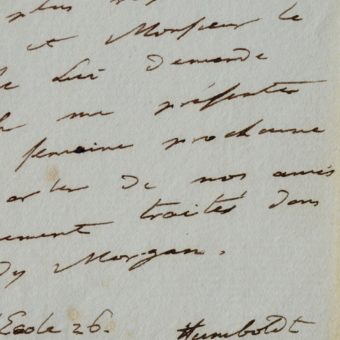 plus
et Monsieur le
Lui demande
me présenter
semaine prochaine
de nos amis
ement traités dans
dy Morgan.
Ecole 26. Humboldt